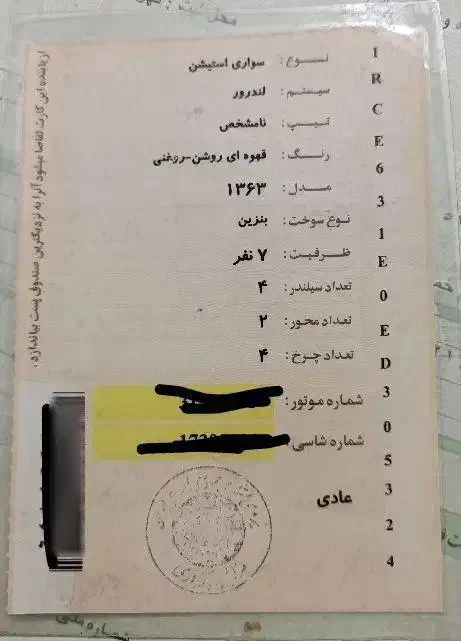 نوع: سواری استیشن
سیستم: لندرور
تیپ: نامشخص
رنگ: قهوه ای روشن-روغنی
مدل: ۱۳۶۳
نوع سوخت: بنزین
ظرفیت: ۷ نفر
تعداد سیلندر: ۴
تعداد محور: ۲
تعداد چرخ: ۴
شماره موتور:
شماره شاسی:
عادی
IRCE631E0ED305324
از یابنده این کارت تقاضا میشود آنرا به نزدیکترین صندوق پست بیاندازد.